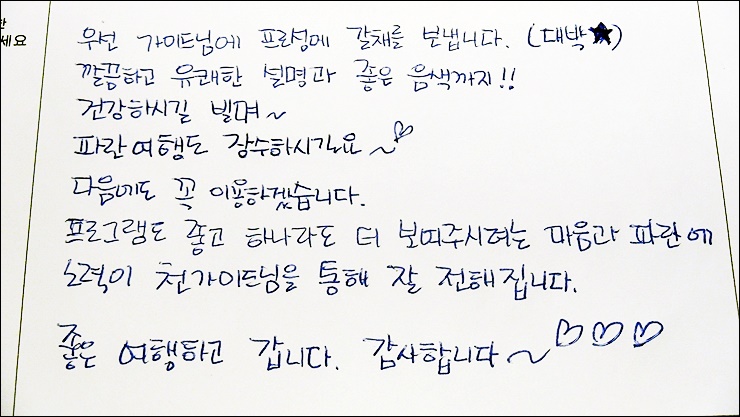 한
세요
우선 가이드님에 프로성에 갈채를 보냅니다. (대박★)
깔끔하고 유쾌한 설명과 좋은 음색까지!!
건강하시길 빌며~
파란여행도 장수하시길요~♡
다음에도 꼭 이용하겠습니다.
프로그램도 좋고 하나라도 더 보여주시려는 마음과 파란에
노력이 천가이드님을 통해 잘 전해집니다.
좋은 여행하고 갑니다. 감사합니다~♡♡♡